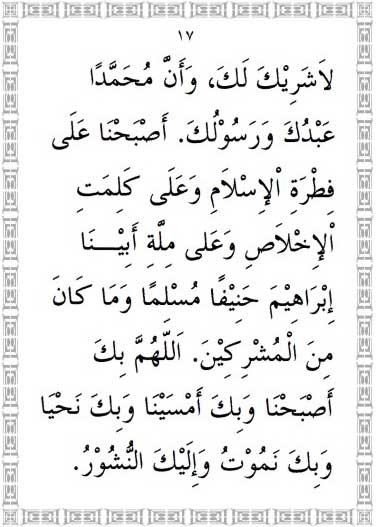 ١٧
لاَشَرِيْكَ لَكَ، وَأَنَّ مُحَمَّدًا
عَبْدُكَ وَرَسُوْلُكَ. أَصْبَحْنَا عَلَى
فِطْرَةِ اْلإِسْلاَمِ وَعَلَى كَلِمَتِ
اْلإِخْلاَصِ وَعَلى مِلَّةِ أَبِيْـــنَا
إِبْرَاهِيْمَ حَنِيْفًا مُسْلِمًا وَمَا كَانَ
مِنَ الْمُشْرِكِيْنَ. اَللّهُمَّ بِكَ
أَصْبَحْنَا وَبِكَ أَمْسَيْنَا وَبِكَ نَحْيَا
وَبِكَ نَمُوْتُ وَإِلَيْكَ النُّشُوْرُ.